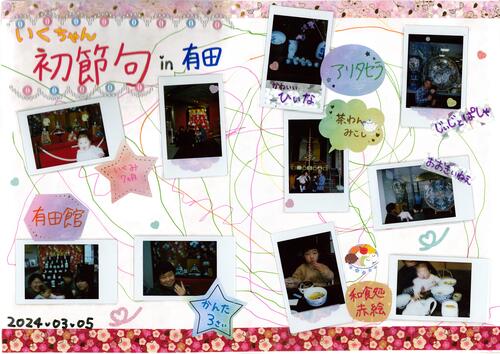 いくちゃん
初節句 in 有田
アリタセラ
かわいい
ひいな
じぃじとぱしゃ
茶わん
みこし
おおきいねぇ
いくみ
7ヵ月
有田館
かんた
3さい
和食処
赤絵
2024.03.05